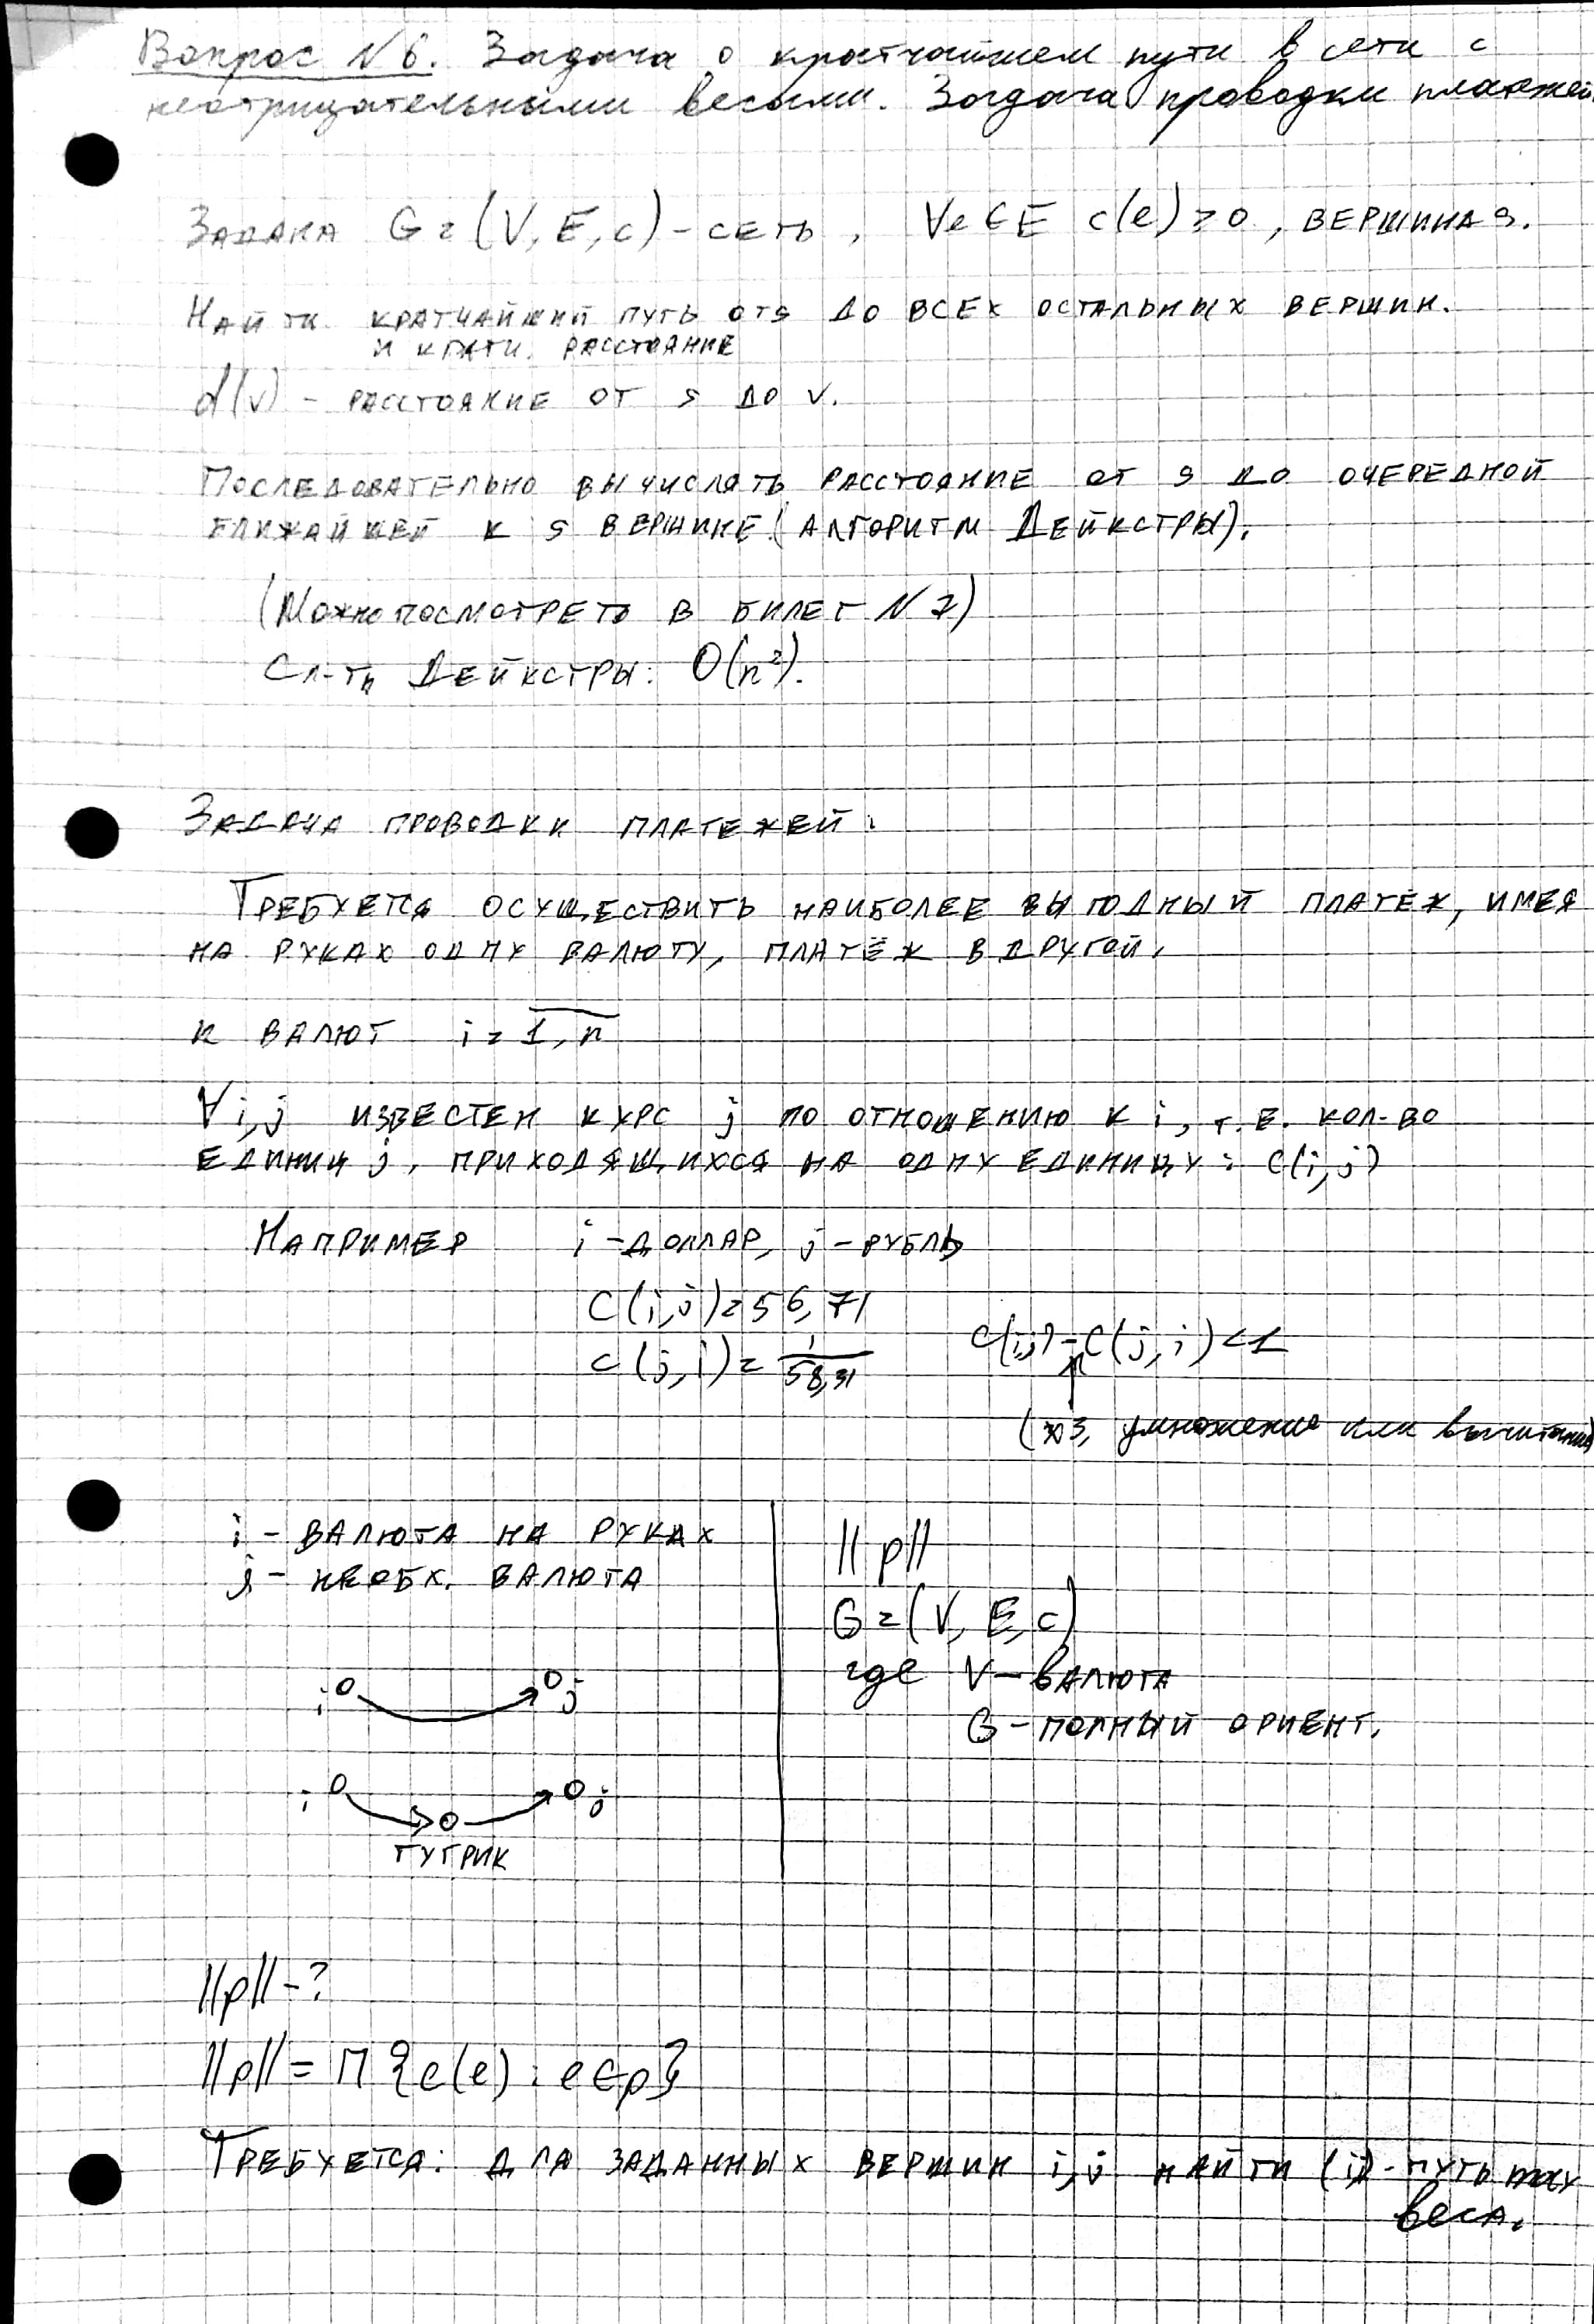 Вопрос №6. Задача о кратчайшем пути в сети с
неотрицательными весами. Задача проводки платежей.
ЗАДАНА G=(V, E, c) - СЕТЬ, ∀e∈E c(e)≥0, ВЕРШИНА S.
НАЙТИ КРАТЧАЙШИЙ ПУТЬ ОТ S ДО ВСЕХ ОСТАЛЬНЫХ ВЕРШИН.
И КРАТЧ. РАССТОЯНИЕ
d(v) - РАССТОЯНИЕ ОТ S ДО V.
ПОСЛЕДОВАТЕЛЬНО ВЫЧИСЛЯТЬ РАССТОЯНИЕ ОТ S ДО ОЧЕРЕДНОЙ
БЛИЖАЙШЕЙ К S ВЕРШИНЕ (АЛГОРИТМ ДЕЙКСТРЫ).
(МОЖНО ПОСМОТРЕТЬ В БИЛЕТ №7)
СЛ-ТЬ ДЕЙКСТРЫ: O(n²).
ЗАДАЧА ПРОВОДКИ ПЛАТЕЖЕЙ:
ТРЕБУЕТСЯ ОСУЩЕСТВИТЬ НАИБОЛЕЕ ВЫГОДНЫЙ ПЛАТЁЖ, ИМЕЯ
НА РУКАХ ОДНУ ВАЛЮТУ, ПЛАТЁЖ В ДРУГОЙ.
n ВАЛЮТ i = 1, n
∀i,j ИЗВЕСТЕН КУРС j ПО ОТНОШЕНИЮ К i, Т.Е. КОЛ-ВО
ЕДИНИЦ j, ПРИХОДЯЩИХСЯ НА ОДНУ ЕДИНИЦУ: C(i,j)
НАПРИМЕР i - ДОЛЛАР, j - РУБЛЬ
C(i,j)=56,71
C(j,i)= 1/58,31 C(i,j) - C(j,i) < 1
(хз, умножение или вычитание)
i - ВАЛЮТА НА РУКАХ
j - НЕОБХ. ВАЛЮТА
||p||
G=(V, E, c)
где V - ВАЛЮТА
G - ПОЛНЫЙ ОРИЕНТ.
i j
i j
ТУГРИК
||p|| - ?
||p|| = П {c(e) : e∈p}
ТРЕБУЕТСЯ: ДЛЯ ЗАДАННЫХ ВЕРШИН i,j НАЙТИ (i,j) - ПУТЬ max
веса.